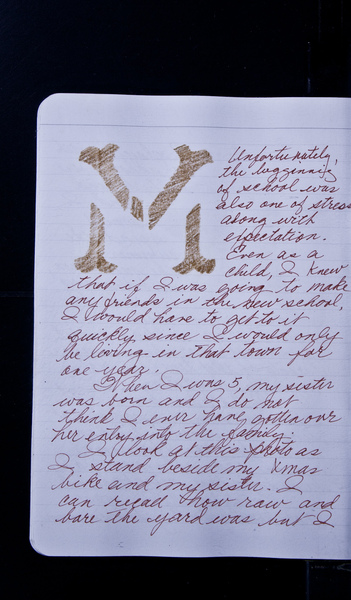 M
Unfortunately,
the beginning
of school was
also one of stress
along with
expectation.
Even as a
child, I knew
that if I was going to make
any friends in the new school,
I would have to get to it
quickly since I would only
be living in that town for
one year.
When I was 5, my sister
was born and I do not
think I ever have gotten over
her entry into the family.
I look at this photo as
I stand beside my Xmas
bike and my sister. I
can recall how raw and
bare the yard was but I